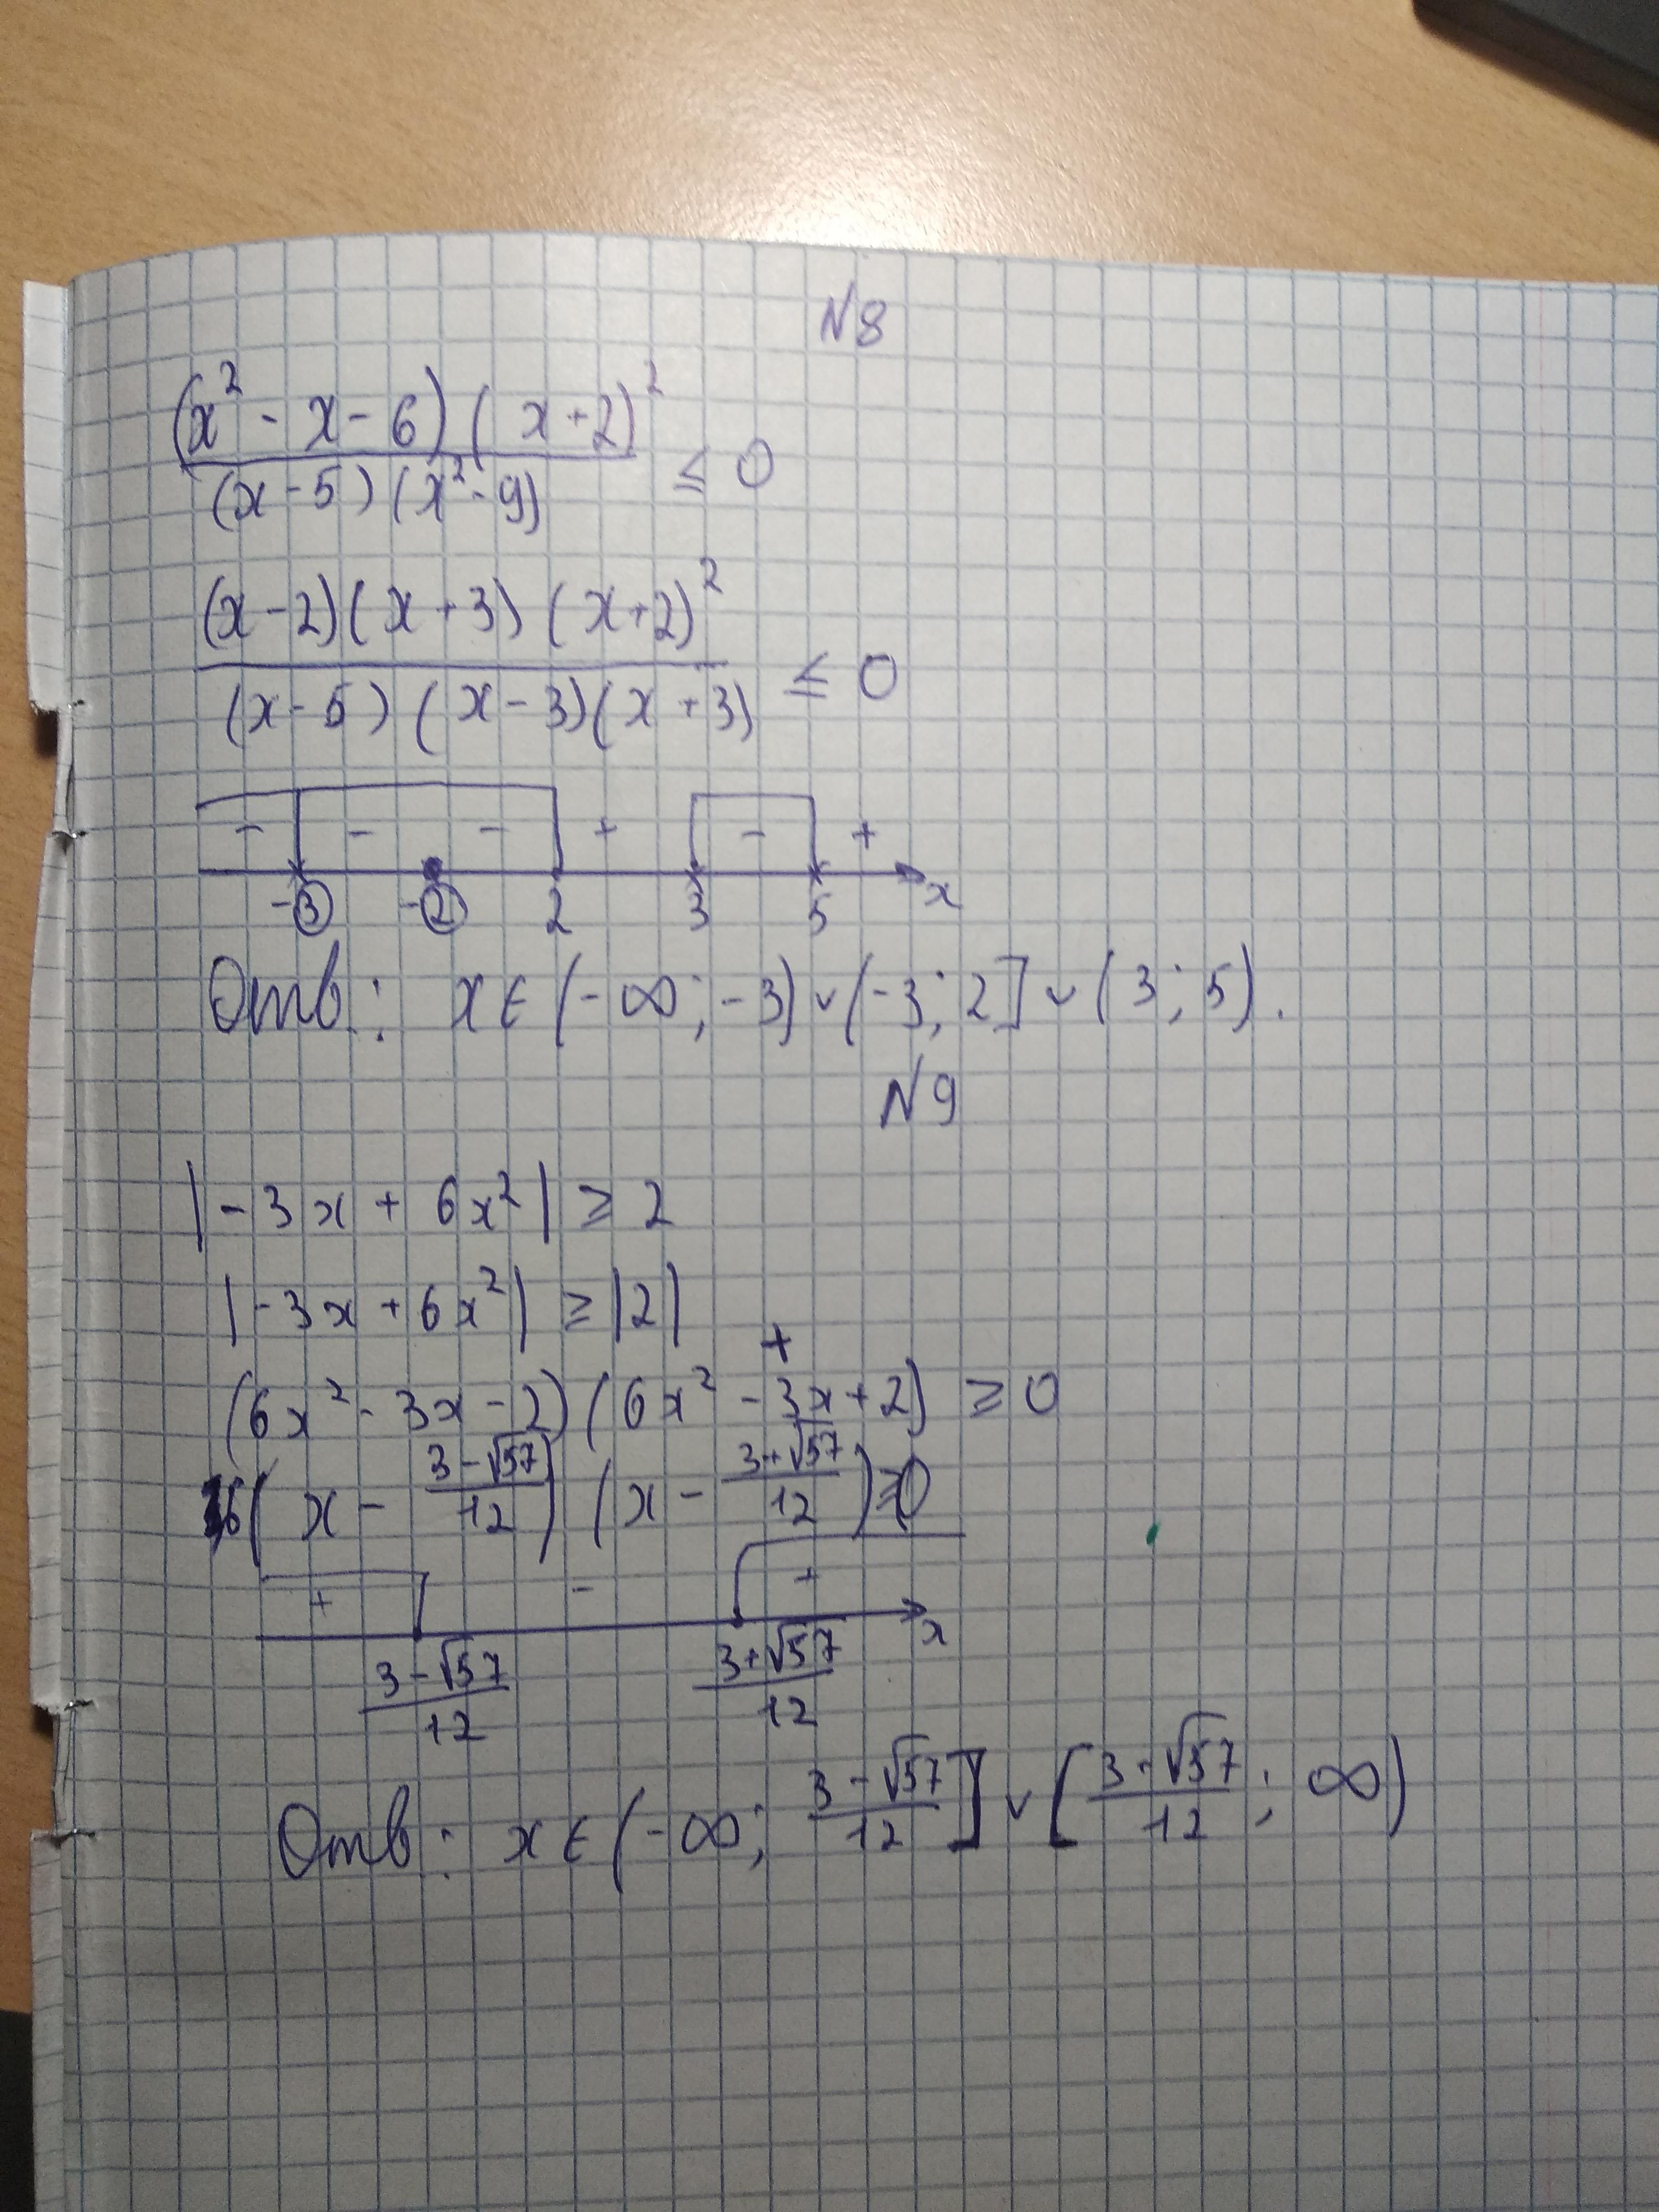 N8
(x² - x - 6)(x+2)² / (x-5)(x²-9) ≤ 0
(x-2)(x+3)(x+2)² / (x-5)(x-3)(x+3) ≤ 0
- - - + - +
-3 -2 2 3 5 x
Отв: x ∈ (-∞; -3) ∨ (-3; 2] ∨ (3; 5).
N9
|-3x + 6x²| ≥ 2
|-3x + 6x²| ≥ |2|
+
(6x² - 3x - 2)(6x² - 3x + 2) ≥ 0
(x - (3-√57)/12)(x - (3+√57)/12) ≥ 0
+ - +
(3-√57)/12 (3+√57)/12 x
Отв: x ∈ (-∞; (3-√57)/12] ∨ [(3+√57)/12; ∞)